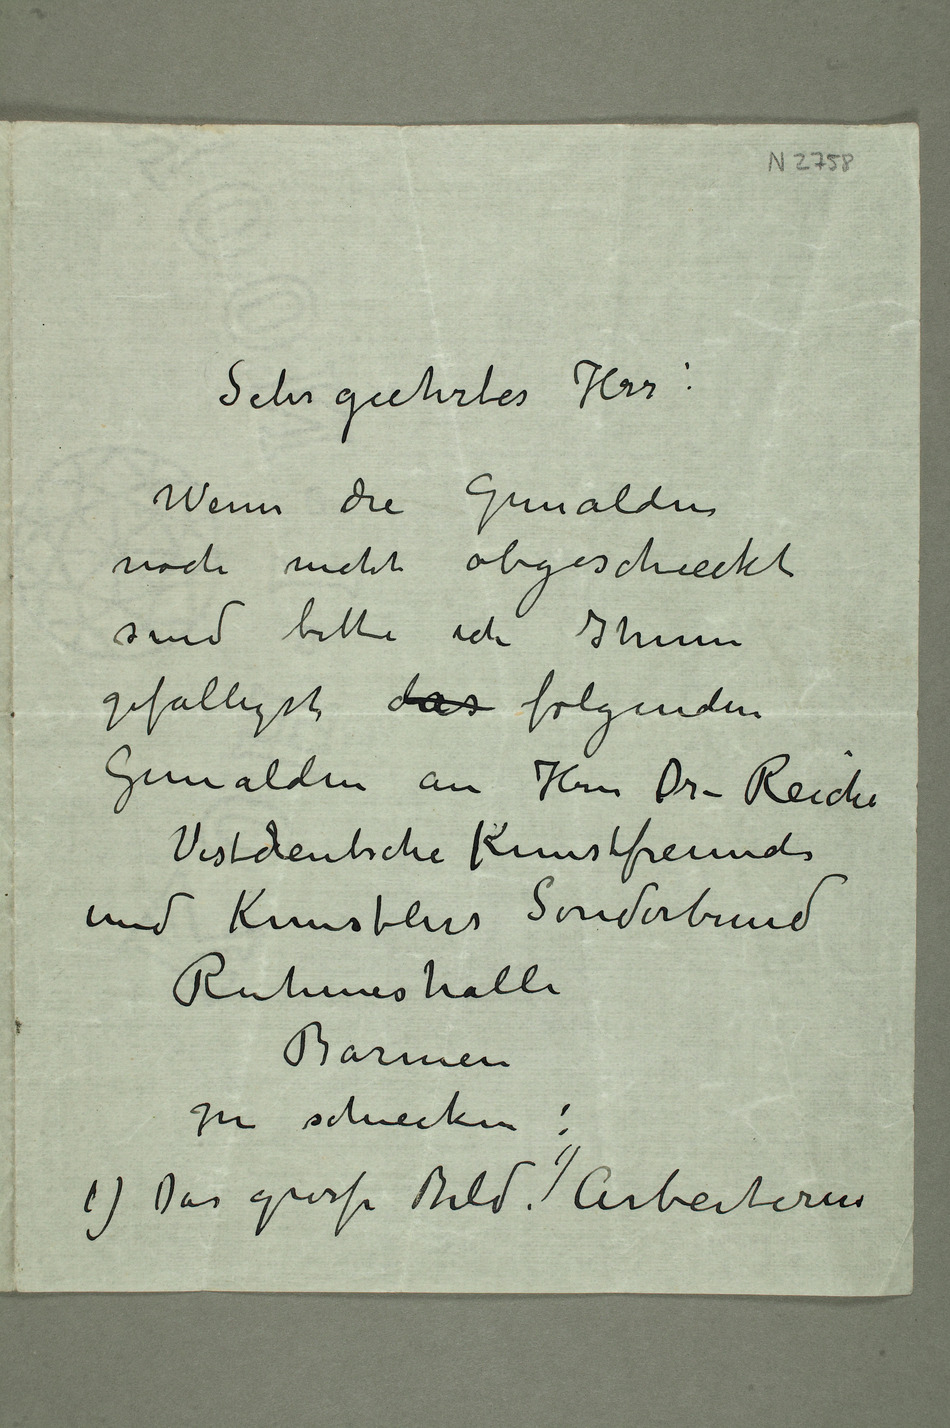 N 2758
Sehr geehrtes Herr!
Wenn die Gemälden
noch nicht abgeschieckt
sind bitte ich Ihnen
gefälligst das folgenden
Gemälden an Herrn Dr– Reiche
Vestdeutsche Kunstfreunde
und Kunstlers Sonderbund
Ruhmeshalle
Barmen
zu schiecken:
1) Das grosse Bild: "Arbeiteren